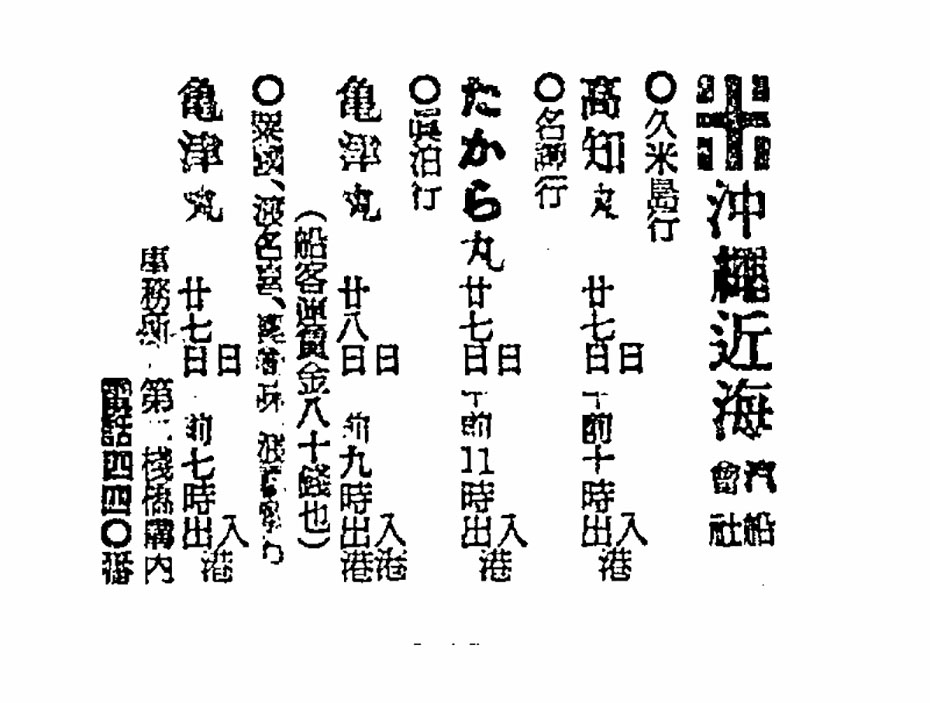 沖繩近海汽船會社
〇久米島行
高知丸 廿七日 日 午前十時出 入港
〇名護行
たから丸 廿七日 日 午前11時出 入港
〇眞泊行
亀津丸 廿八日 日 前九時出港 入港
(船客運賃金八十錢也)
〇粟國、渡名喜、
亀津丸 廿七日 日 前七時出 入港
事務所 第二棧橋構内
電話四四〇番